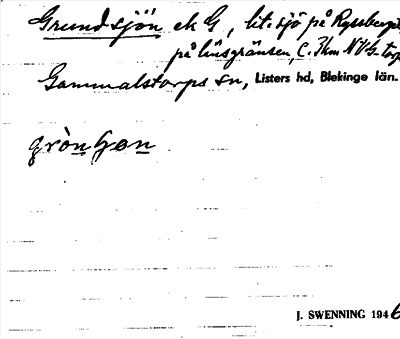 Grundsjön ek G, lit. sjö på Ryssberget
på länsgränsen, C. 7km NV G-torp
Gammalstorps sn, Listers hd, Blekinge län.
gròn
J. SWENNING 1946